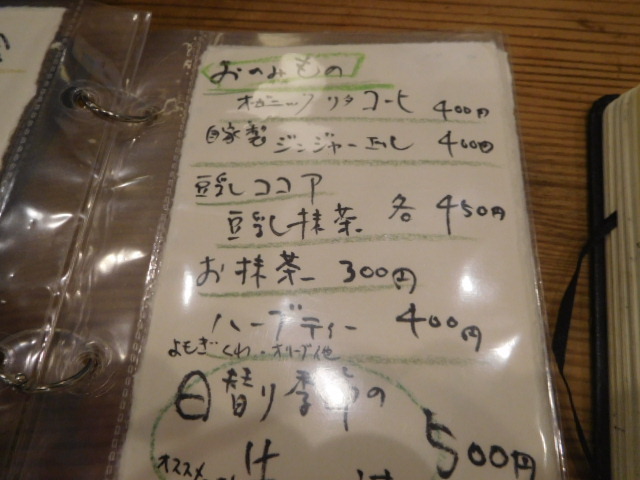 おのみもの
オーガニック リタ コーヒー 400円
自家製 ジンジャーエール 400円
豆乳ココア
豆乳抹茶 各 450円
お抹茶 300円
ハーブティー 400円
よもぎ・くわ・オリーブ他
日替り季節の
500円
オススメ